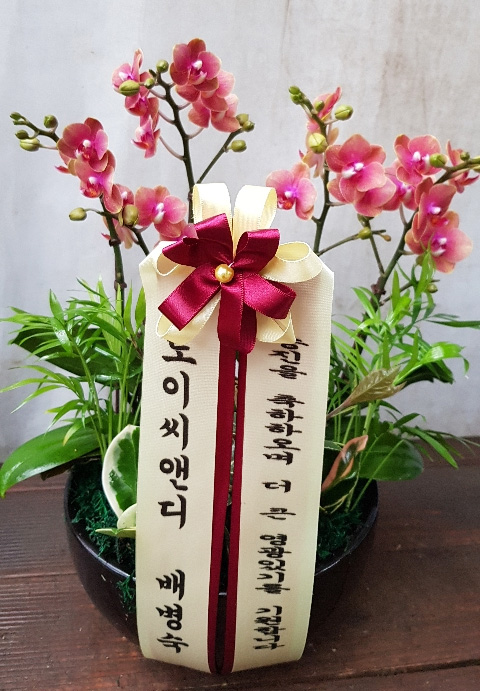 도이씨앤디 배병숙
승진을 축하하오며 더 큰 영광있기를 기원합니다